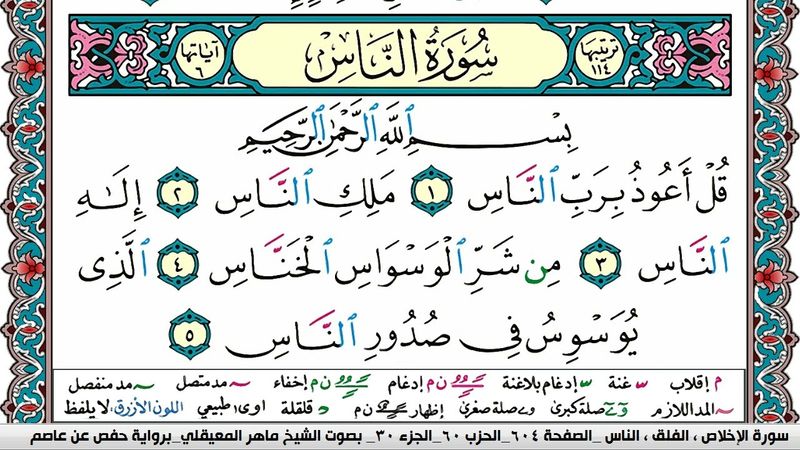 ترتيبها
١١٤
سُورَةُ النَّاسِ
آياتها
٦
بِسْمِ ٱللَّهِ ٱلرَّحْمَٰنِ ٱلرَّحِيمِ
قُلْ أَعُوذُ بِرَبِّ ٱلنَّاسِ ١ مَلِكِ ٱلنَّاسِ ٢ إِلَٰهِ
ٱلنَّاسِ ٣ مِن شَرِّ ٱلْوَسْوَاسِ ٱلْخَنَّاسِ ٤ ٱلَّذِى
يُوَسْوِسُ فِى صُدُورِ ٱلنَّاسِ ٥
م إقلاب غنة إدغام بلاغنة ن م إدغام ن م إخفاء مد متصل مد منفصل
المد اللازم صلة كبرى صلة صغرى إظهار ن م قلقلة او ى ا طبيعي اللون الأزرق: لا يلفظ
سورة الإخلاص ، الفلق ، الناس _الصفحة ٦٠٤_الحزب ٦٠_الجزء ٣٠_ بصوت الشيخ ماهر المعيقلي_برواية حفص عن عاصم